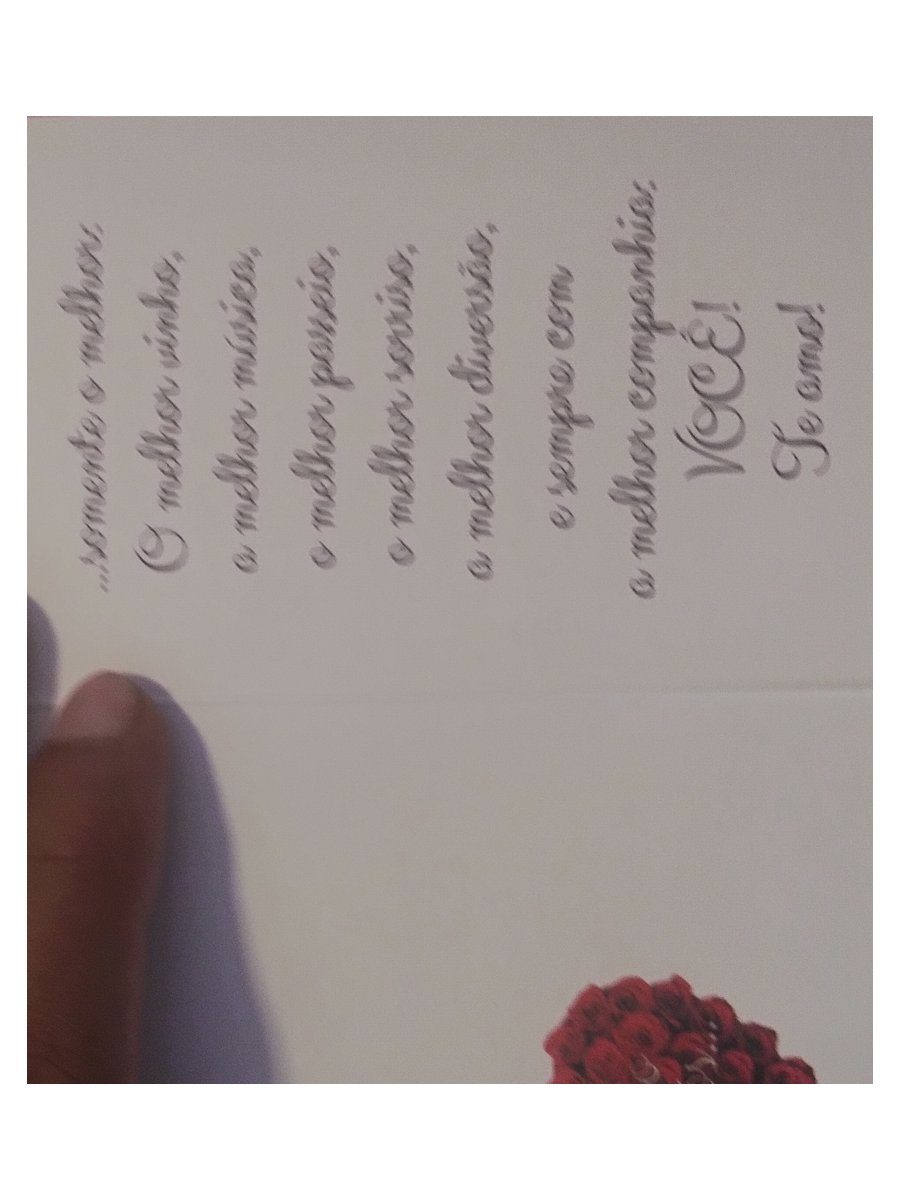 ...somente o melhor:
O melhor vinho,
a melhor música,
o melhor passeio,
o melhor sorriso,
a melhor diversão,
e sempre com
a melhor companhia:
VOCÊ!
Te amo!